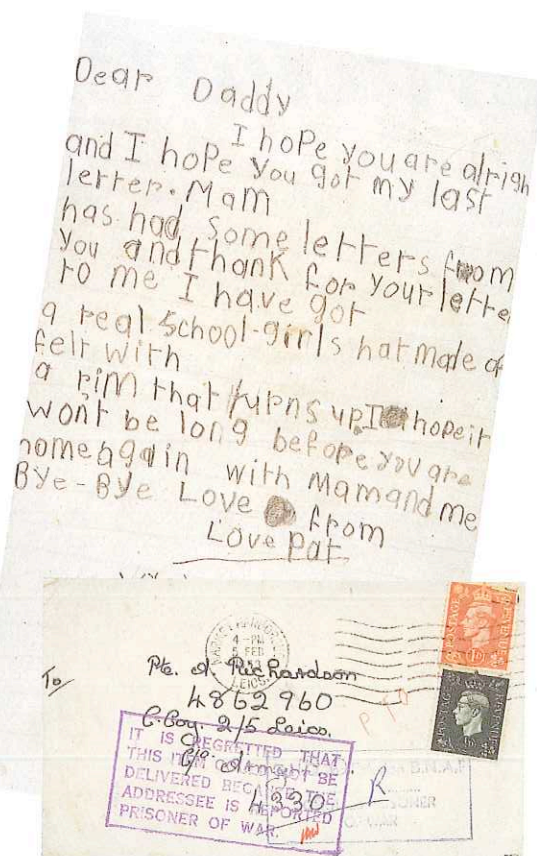 Dear Daddy
I hope you are alrigh
and I hope you got my last
letter. Mam
has had some letters from
you and thank for your lette
to me I have got
a real school-girls hat made of
felt with
a rim that turns up. I hope it
wont be long before you are
home again with Mam and me
Bye-Bye Love from
Love Pat
4 - PM
5 FEB
LEICS.
POSTAGE
1D
POSTAGE
To
Pte. A Richardson
4862960
C. Coy. 2/5 Leics.
4330
PTO
R
IT IS REGRETTED THAT
THIS ITEM COULD NOT BE
DELIVERED BECAUSE THE
ADDRESSEE IS REPORTED
PRISONER OF WAR.
B.N.A.F
PRISONER
OF WAR